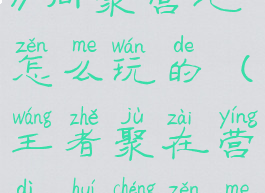 zěn me wán de
怎么玩的（
wáng zhě jù zài yíng
王者聚在营
dì huí chéng zěn me